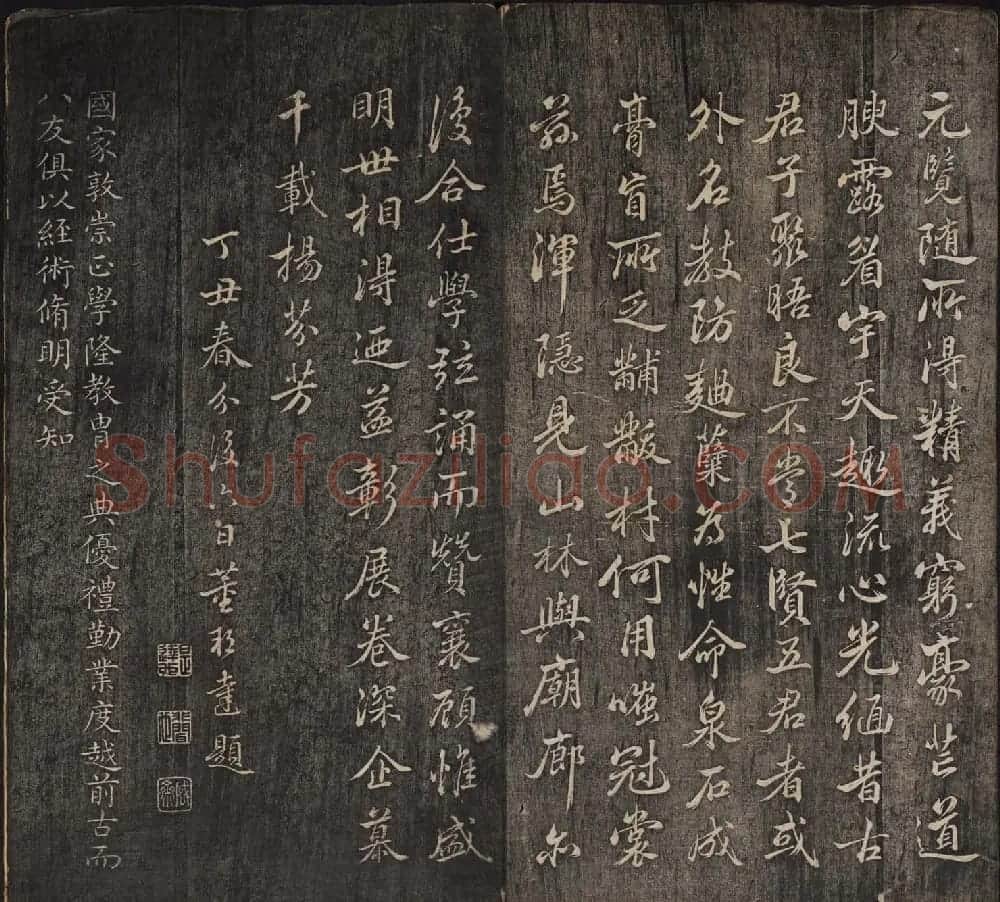 元覽随所得精義窮豪芒道
腴露眉宇天趣流心光緬昔古
君子聚晤良不常七賢五君者或
外名教防麯蘗為性命泉石成
膏肓所乏黼黻材何用嗤冠裳
茲焉渾隱見山林與廟廊亦
復合仕學弦誦而贊襄顧惟盛
明世相得迺益彰展卷深企慕
千載揚芬芳
丁丑春分後六日董邦達題
國家敦崇正學隆教胄之典優禮勤業度越前古而
八友俱以經術脩明受知
Shufaziliao.COM